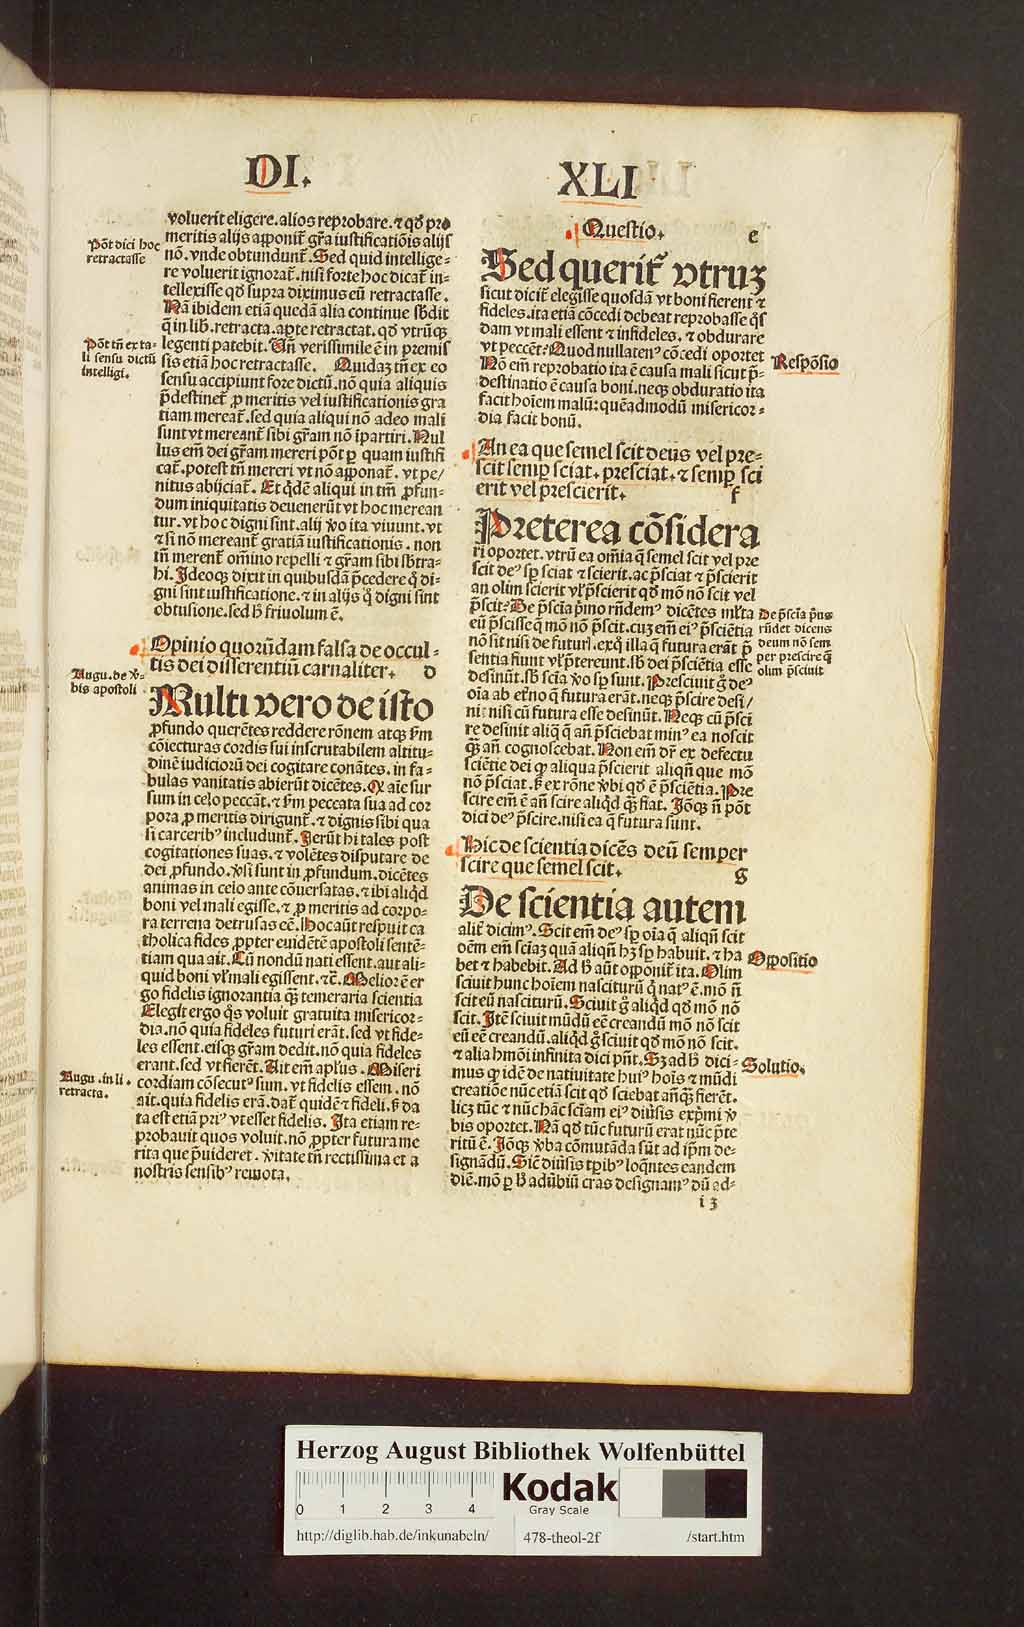 DI.
XLI
voluerit eligere. alios reprobare. ⁊ qd̕ pro
meritis alijs apponit̄ gr̄a iustificatiōis alijs
nō. vnde obtundunt̄. Sed quid intellige-
re voluerit ignorat̄. nisi forte hoc dicat̄ in-
tellexisse qd̕ supra diximus eū retractasse.
Nā ibidem etiā quedā alia continue sb̄dit
q̄ in lib. retracta. aꝑte retractat. qd̕ vtrūqꝫ
legenti patebit. Vn̄ verissimile ē in p̄emis
sis etiā hoc retractasse. Quidaꝫ tn̄ ex eo
sensu accipiunt fore dictū. nō quia aliquis
p̄destinet̄ ꝓ meritis vel iustificationis gra
tiam mereat̄. sed quia aliqui nō adeo mali
sunt vt mereant̄ sibi gr̄am nō īpartiri. Nul
lus em̄ dei gr̄am mereri pōt ꝑ quam iustifi
cat̄. potest tn̄ mereri vt nō apponat̄. vt pe/
nitus abijciat̄. Et qd̕ē aliqui in tm̄ ꝓfun-
dum iniquitatis deuenerūt vt hoc merean
tur. vt hoc digni sint. alij v̕o ita viuunt. vt
⁊ si nō mereant̄ gratiā iustificationis. non
tn̄ merent̄ om̄ino repelli ⁊ gr̄am sibi sb̄tra-
hi. Ideoqꝫ dixit in quibusdā p̄cedere q̄ di-
gni sint iustificatione. ⁊ in alijs q̄ digni sint
obtusione. sed h̄ friuolum ē.
Opinio quorūdam falsa de occul-
tis dei disserentiū carnaliter. D
Multi vero de isto
ꝓfundo querētes reddere rōnem atqꝫ ẜm
cōiecturas cordis sui inscrutabilem altitu-
dinē iudiciorū dei cogitare conātes. in fa-
bulas vanitatis abierūt dicētes. Qꝫ aīe sur
sum in celo peccāt. ⁊ ẜm peccata sua ad cor
pora ꝓ meritis dirigunt̄. ⁊ dignis sibi qua
si carceribꝰ includunt̄. Ierūt hi tales post
cogitationes suas. ⁊ volētes disputare de
dei ꝓfundo. v̕si sunt in ꝓfundum. dicētes
animas in celo ante cōuersatas. ⁊ ibi aliqd̕
boni vel mali egisse. ⁊ ꝓ meritis ad corpo-
ra terrena detrusas eē. Hoc aūt respuit ca
tholica fides ꝓpter euidētē apostoli sentē-
tiam qua ait. Cū nondū nati essent. aut ali-
quid boni vl̕ mali egissent. ⁊c̄. Melior ē er
go fidelis ignorantia qꝫ̄ temeraria scientia
Elegit ergo q̄s voluit gratuita misericor-
dia. nō quia fideles futuri erāt. sed vt fide-
les essent. eisqꝫ gr̄am dedit. nō quia fideles
erant. sed vt fierēt. Ait em̄ apl̕us. Miseri
cordiam cōsecutꝰ sum. vt fidelis essem. nō
ait. quia fidelis erā. dat̄ quidē ⁊ fideli. ẜ da
ta est etiā priꝰ vt esset fidelis. Ita etiam re-
probauit quos voluit. nō ꝓpter futura me
rita que p̄uideret. v̕itate tn̄ rectissima et a
nostris sensibꝰ remota.
Pōt dici hoc
retractasse
Pōt tn̄ ex ta-
li sensu dictū
intelligi.
Augu. de v̕-
bis apostoli.
Augu. in li.
retracta.
Questio. e
Sed querit̄ vtruꝫ
sicut dicit̄ elegisse quosdā vt boni fierent ⁊
fideles. ita etiā cōcedi debeat reprobasse q̄s
dam vt mali essent ⁊ infideles. ⁊ obdurare
vt peccēt? Quod nullatenꝰ cōcedi oportet
Nō em̄ reprobatio ita ē causa mali sicut p̄-
destinatio ē causa boni. neqꝫ obduratio ita
facit hoīem malū: quēadmodū misericor-
dia facit bonū.
An ea que semel scit deus vel pre-
scit semꝑ sciat. presciat. ⁊ semꝑ sci
erit vel prescierit. f
Preterea cōsidera
ri oportet. vtrū ea om̄ia q̄ semel scit vel pre
scit deꝰ sꝑ sciat ⁊ scierit. ac p̄sciat ⁊ p̄scierit
an olim scierit vl̕ p̄scierit qd̕ mō nō scit vel
p̄scit? De p̄scīa pīmo rn̄demꝰ dicētes ml̕ta
eū p̄scisse q̄ mō nō p̄scit. cuꝫ em̄ eiꝰ p̄sciētia
nō sit nisi de futurꝭ. exq̄ illa q̄ futura erāt p̄
sentia fiunt vl̕ p̄tereunt. sb̄ dei p̄sciētia esse
desinūt. sb̄ scīa v̕o sꝑ sunt. Presciuit g̊ deꝰ
oīa ab et̕no q̄ futura erāt. neqꝫ p̄scire desi/
nit. nisi cū futura esse desinūt. Neqꝫ cū p̄sci
re desinit aliq̄ q̄ an̄ p̄sciebat minꝰ ea noscit
qꝫ̄ an̄ cognoscebat. Non em̄ dr̄ ex defectu
sciētie dei qꝫ aliqua p̄scierit aliqn̄ que mō
nō p̄sciat. ẜ ex rōne v̕bi qd̕ ē p̄sciētia. Pre
scire em̄ ē an̄ scire aliqd̕ qꝫ̄ fiat. Iōqꝫ n̄ pōt
dici deꝰ p̄scire. nisi ea q̄ futura sunt.
Hic de scientia dicēs deū semper
scire que semel scit. g
De scientia autem
alit̄ dicimꝰ. Scit em̄ deꝰ sꝑ oīa q̄ aliqn̄ scit
oēm em̄ sciaꝫ quā aliqn̄ hꝫ sꝑ habuit. ⁊ ha
bet ⁊ habebit. Ad h̄ aūt opponit̄ ita. Olim
sciuit hunc hoīem nasciturū q̄ natꝰ ē. mō n̄
scit eū nasciturū. Sciuit g̊ aliqd̕ qd̕ mō nō
scit. Itē sciuit mūdū eē creandū mō nō scit
eū eē creandū. aliqd̕ g̊ sciuit qd̕ mō nō scit.
⁊ alia hmōi infinita dici pn̄t. Sꝫ ad h̄ dici-
mus qꝫ idē de natiuitate huiꝰ hoīs ⁊ mūdi
creatiōe nūc etiā scit qd̕ sciebat an̄qꝫ̄ fierēt.
licꝫ tūc ⁊ nūc hāc scīam eiꝰ diu̕sis exp̄mi v̕
bis oportet. Nā qd̕ tūc futurū erat nūc p̄te
ritū ē. Iōqꝫ v̕ba cōmutāda sūt ad ip̄m de-
signādū. Sic̄ diu̕sis tꝑibꝰ loq̄ntes eandem
diē. mō ꝑ h̄ adu̕biū cras designamꝰ dū ad-
i 3
Respōsio
De p̄scīa p̄us
rn̄det dicens
deum nō sem
per prescire q̄
olim p̄sciuit
Oppositio
Solutio.
Herzog August Bibliothek Wolfenbüttel
0 1 2 3 4
Kodak
Gray Scale
http://diglib.hab.de/inkunabeln/ 478-theol-2f /start.htm